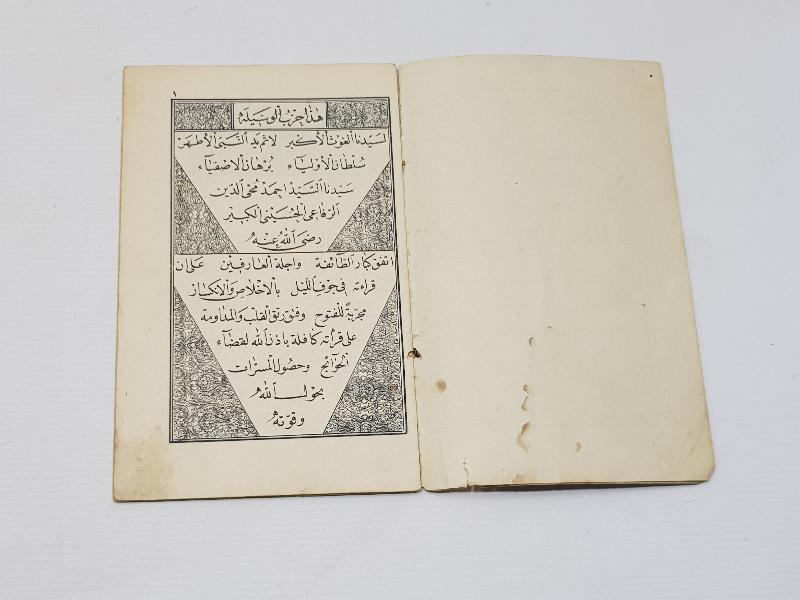 ١
هذا حزب الوسيلة
لسيدنا الغوث الأكبر لاثم يد النبي الأطهر
سلطان الأولياء برهان الاصفياء
سيدنا السيد احمد محي الدين
الرفاعي الحسيني الكبير
رضي الله عنه
اتفق كبار الطائفة واجلة العارفين على ان
قرائته في جوف الليل بالاخلاص والانكسار
مجربة للفتوح وفتق رتق القلب والمداومة
على قرأته كافلة باذن الله لقضاء
الحوائج وحصول المسرات
بحول الله
وقوته